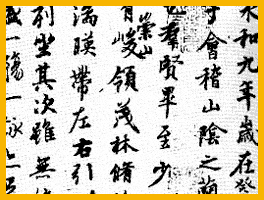 永和九年歲在癸
于會稽山陰之蘭
也羣賢畢至少
有崇山峻領茂林脩
湍暎帶左右引
列坐其次雖無
盛一觴一詠亦